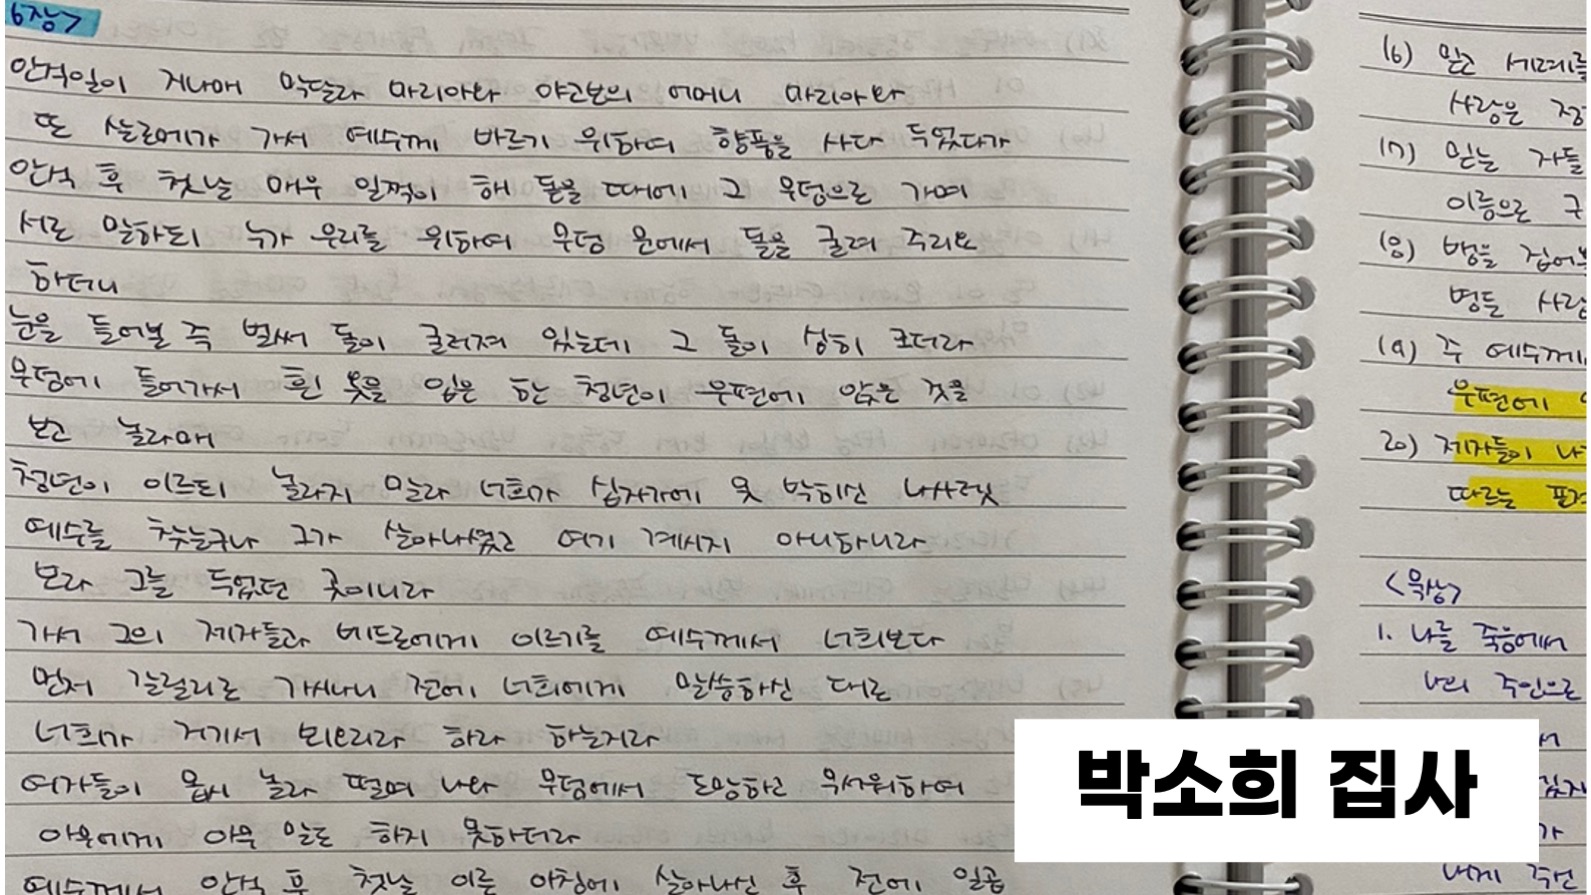 6장>
안식일이 지나매 막달라 마리아와 야고보의 어머니 마리아와
또 살로메가 가서 예수께 바르기 위하여 향품을 사다 두었다가
안식 후 첫날 매우 일찍이 해 돋을 때에 그 무덤으로 가며
서로 말하되 누가 우리를 위하여 무덤 문에서 돌을 굴려 주리요
하더니
눈을 들어본 즉 벌써 돌이 굴려져 있는데 그 돌이 심히 크더라
무덤에 들어가서 흰 옷을 입은 한 청년이 우편에 앉은 것을
보고 놀라매
청년이 이르되 놀라지 말라 너희가 십자가에 못 박히신 나사렛
예수를 찾는구나 그가 살아나셨고 여기 계시지 아니하니라
보라 그를 두었던 곳이니라
가서 그의 제자들과 베드로에게 이르기를 예수께서 너희보다
먼저 갈릴리로 가시나니 전에 너희에게 말씀하신 대로
너희가 거기서 뵈오리라 하라 하는지라
여자들이 몹시 놀라 떨며 나와 무덤에서 도망하고 무서워하여
아무에게 아무 말도 하지 못하더라
예수께서 안식 후 첫날 이른 아침에 살아나신 후 전에 일곱
16) 믿고 세례를
사람은 정
17) 믿는 자들
이름으로 구
18) 뱀을 집어
병든 사람
19) 주 예수께
우편에
20) 제자들이 나
따르는 표
<묵상>
1. 나를 죽음에서
나의 주인으로
내게 주신
박소희 집사